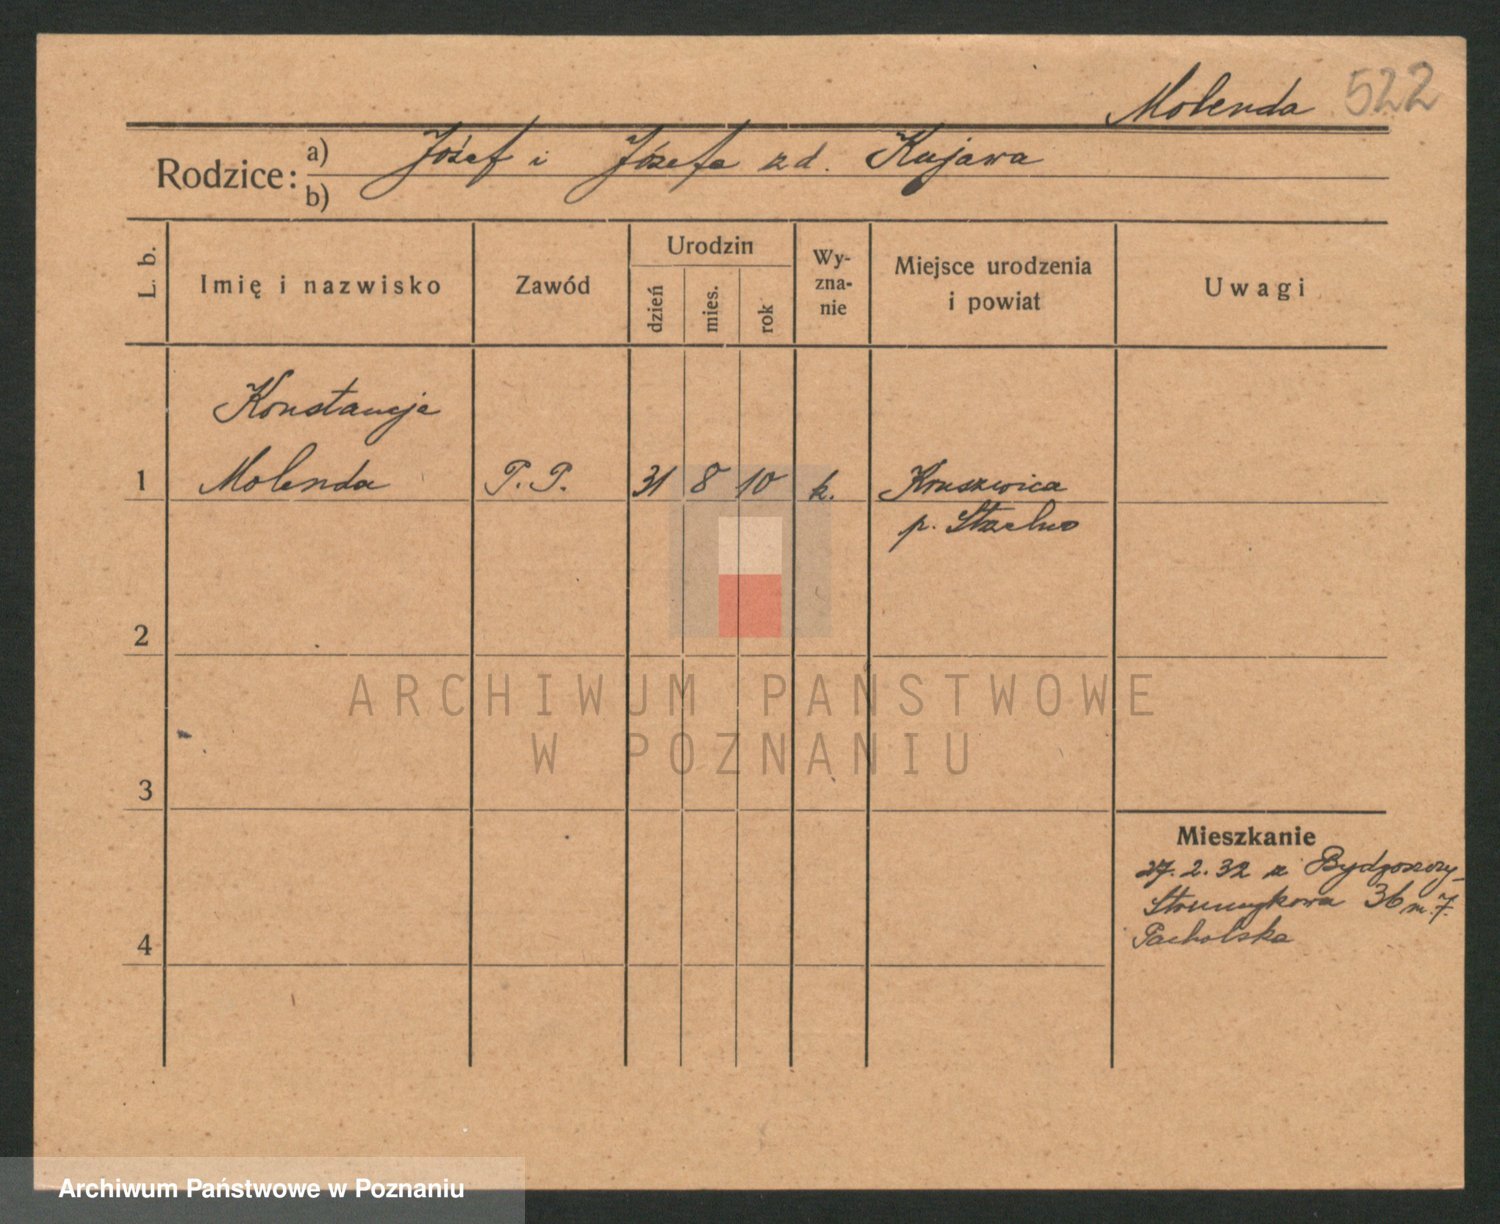 Molenda 522
Rodzice: a) Józef i Józefa z d. Kujawa
b)
L. b.
Imię i nazwisko
Zawód
Urodzin
dzień
mies.
rok
Wy-
zna-
nie
Miejsce urodzenia
i powiat
Uwagi
Konstancja
1 Molenda P. P. 31 8 10 k. Kruszwica
p. Strzelno
2
3
4
Mieszkanie
27. 2. 32 z Bydgoszczy
Strumykowa 36 m. 7.
Pacholska
ARCHIWUM PAŃSTWOWE
W POZNANIU
Archiwum Państwowe w Poznaniu